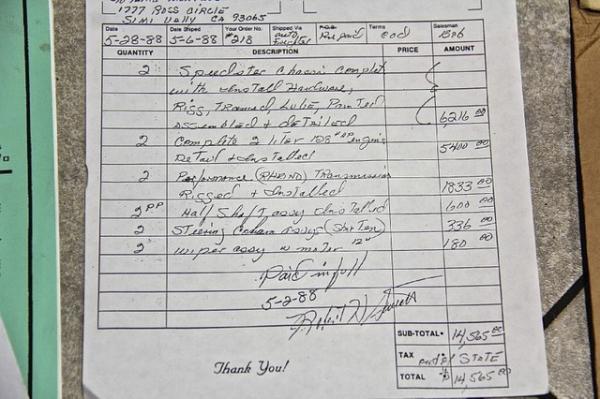 1777 Ross Circle
Simi Vally CA 93065
Date Date Shiped Your Order No. Shipped Via F.O.B. Terms Salesman
5-28-88 5-6-88 #218 Prepaid cod Bob
QUANTITY DESCRIPTION PRICE AMOUNT
2 Speedster Chassis Complet
with Install Hardware,
Rigg, Lube, Painted
Assembled & detailed 6216 00
2 Complete 2 liter engine
Detail & Installed 5400 00
2 Performance (RHINO) Transmission
Rigged & Installed 1833 00
2 PP Half Shaft assy Installed 600 00
2 Steering Column assys 336 00
2 wiper assy w motor 12v 180 00
Paid in full
5-2-88
SUB-TOTAL 14,565 00
TAX STATE
TOTAL $14,565 00
Thank You!